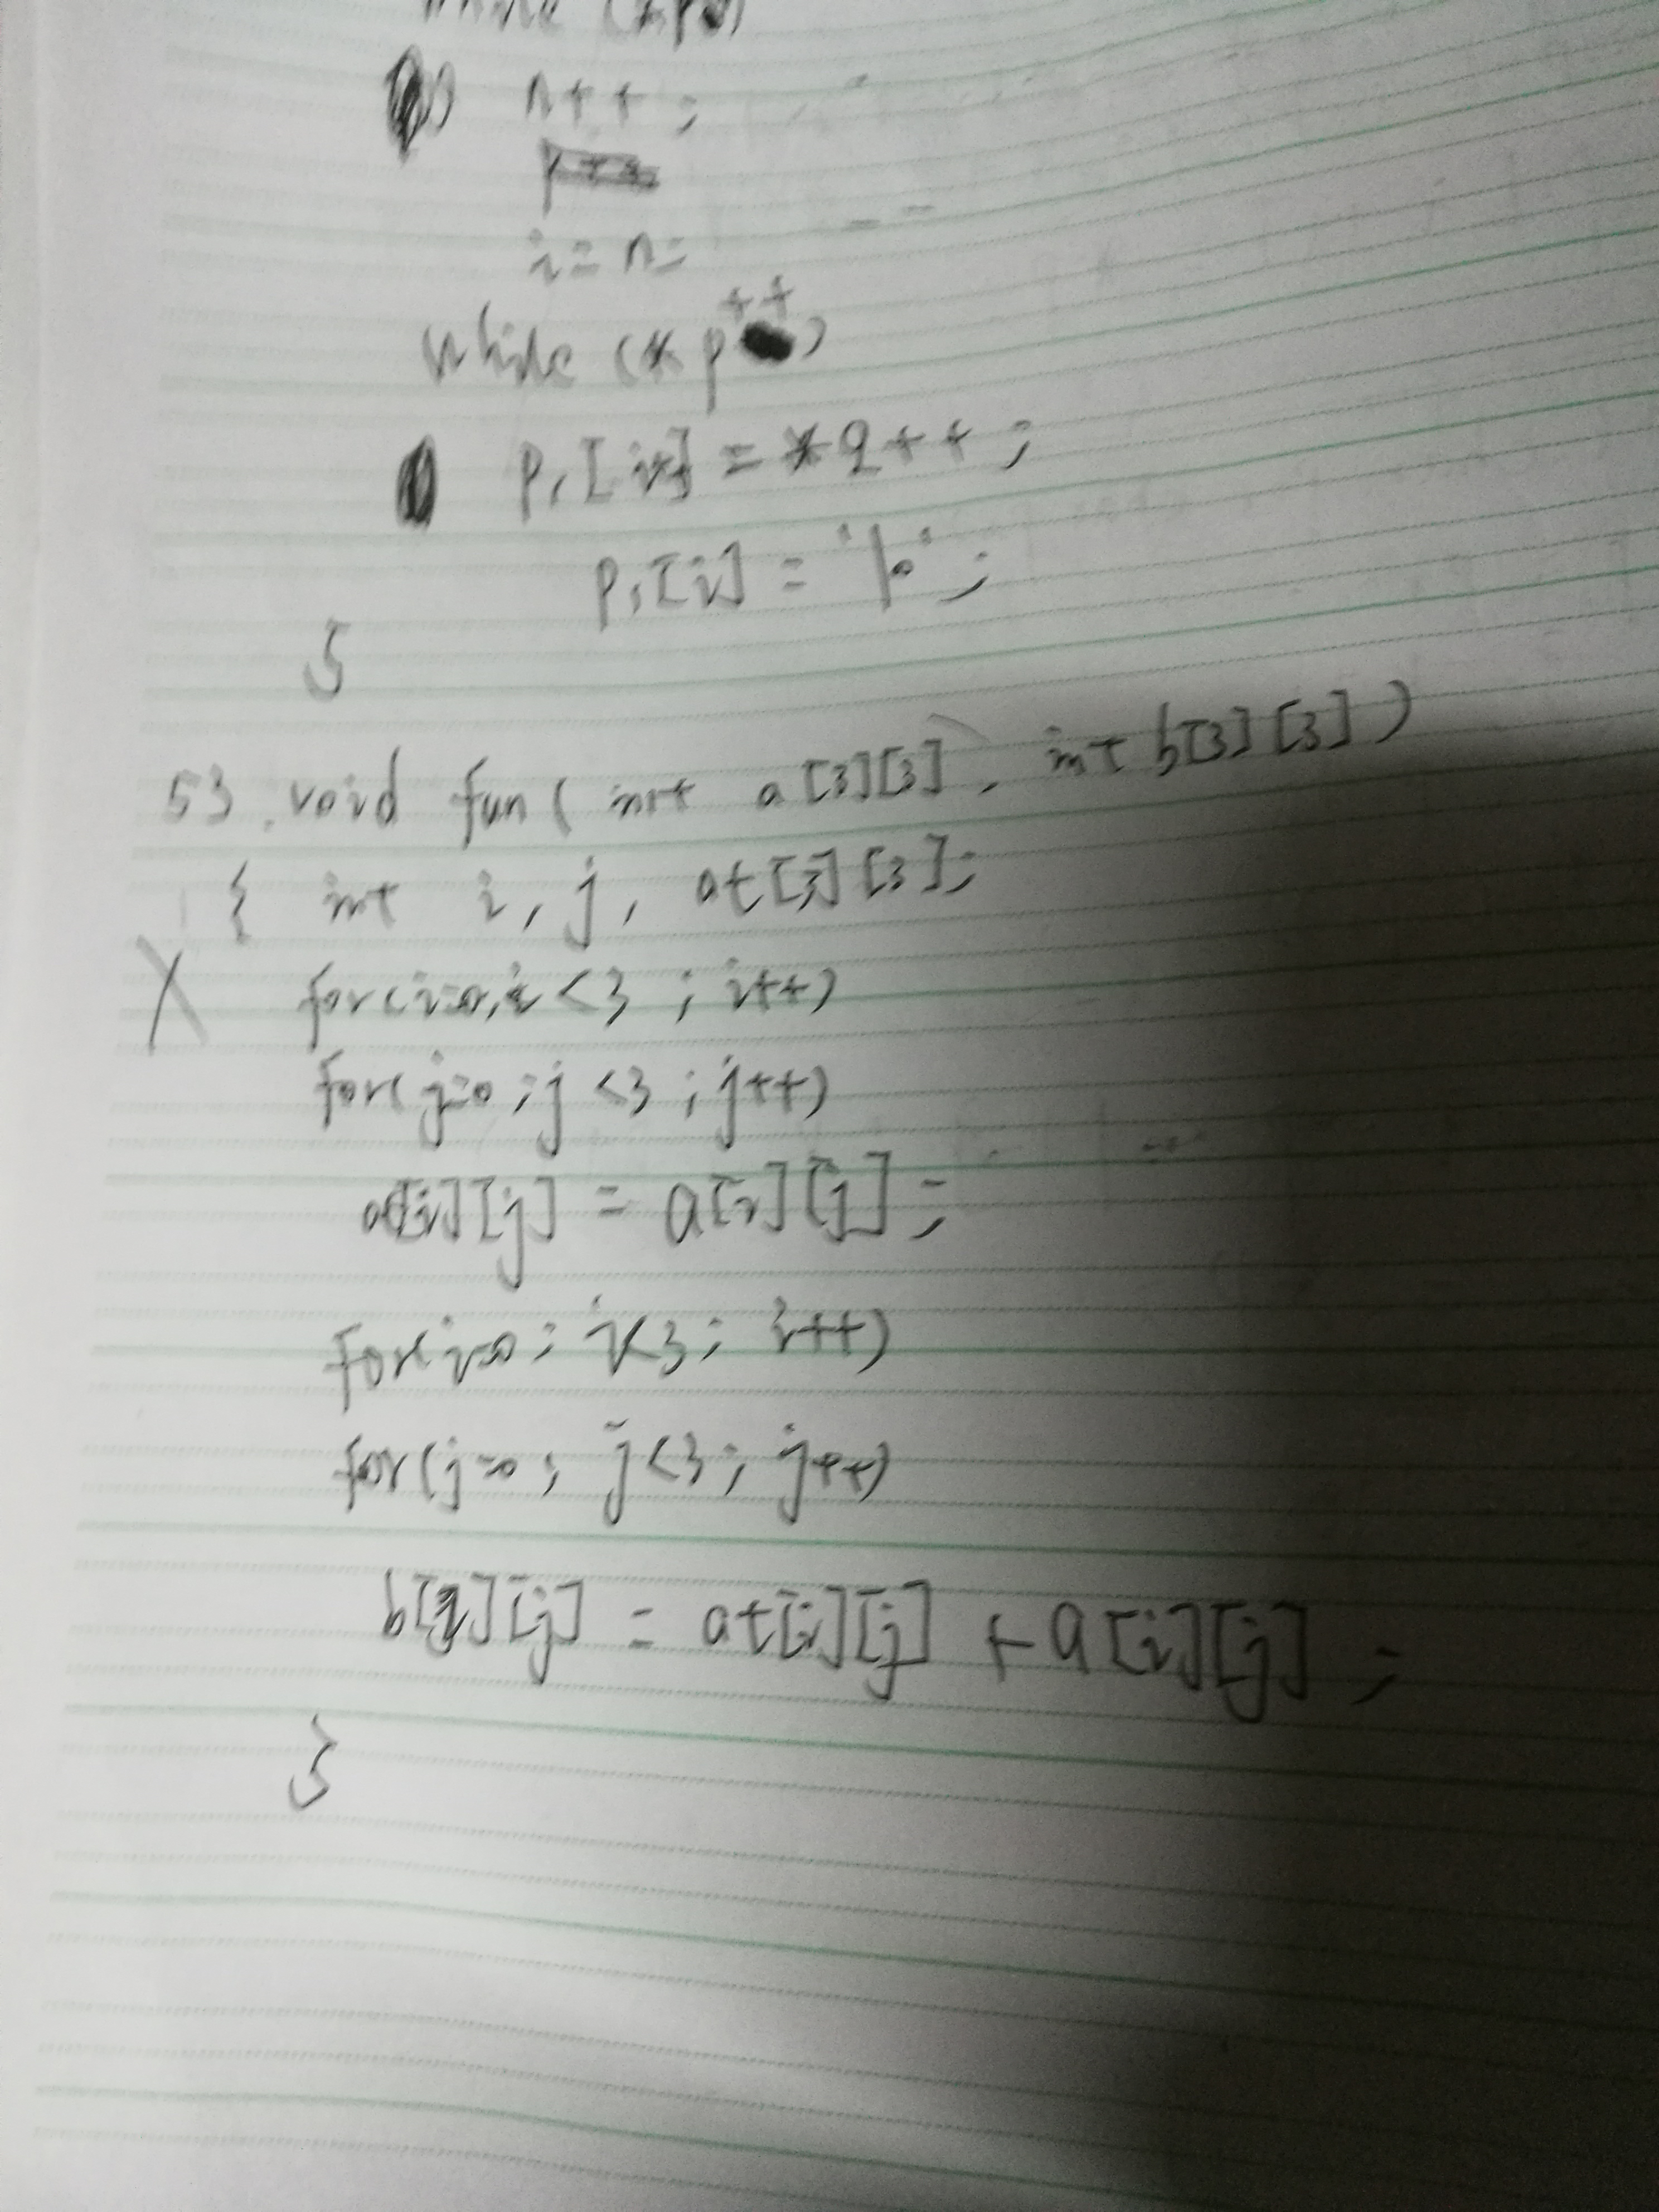 n++;
i=n;
while (*p++)
p1[i]=*q++;
p1[i]='\0';
}
53. void fun( int a[3][3], int b[3][3])
{ int i, j, at[3][3];
for(i=0;i<3;i++)
for(j=0;j<3;j++)
at[i][j]=a[i][j];
for(i=0;i<3;i++)
for(j=0;j<3;j++)
b[i][j]=at[i][j]+a[i][j];
}